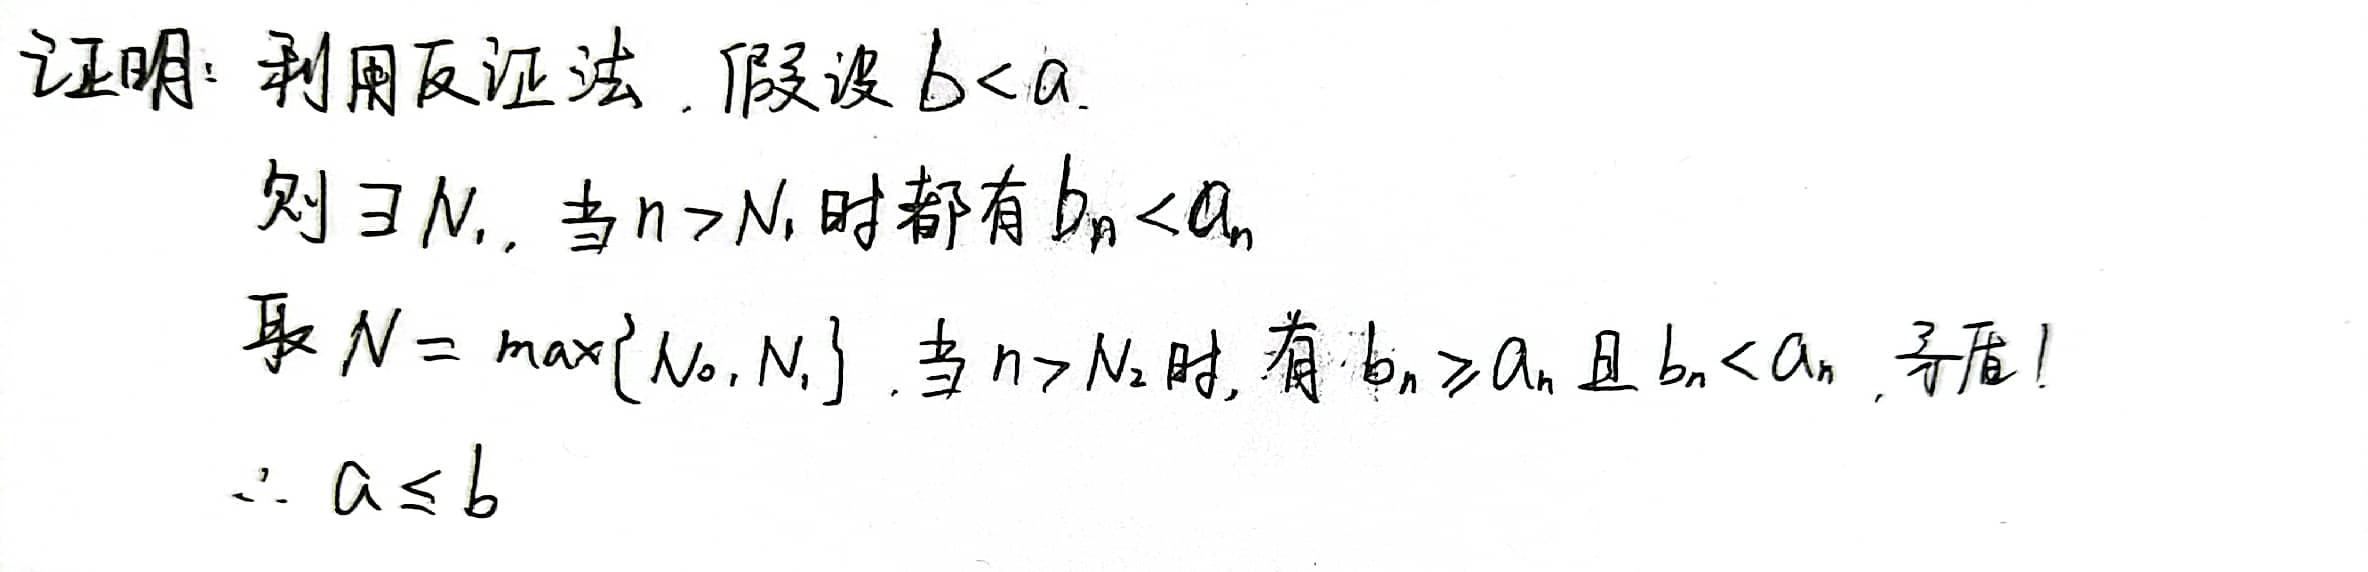 证明: 利用反证法, 假设 b<a.
则∃N₁, 当n>N₁时都有bₙ<aₙ
取 N = max{N₀, N₁}, 当n>N₂时, 有 bₙ⩾aₙ 且 bₙ<aₙ, 矛盾!
∴ a≤b